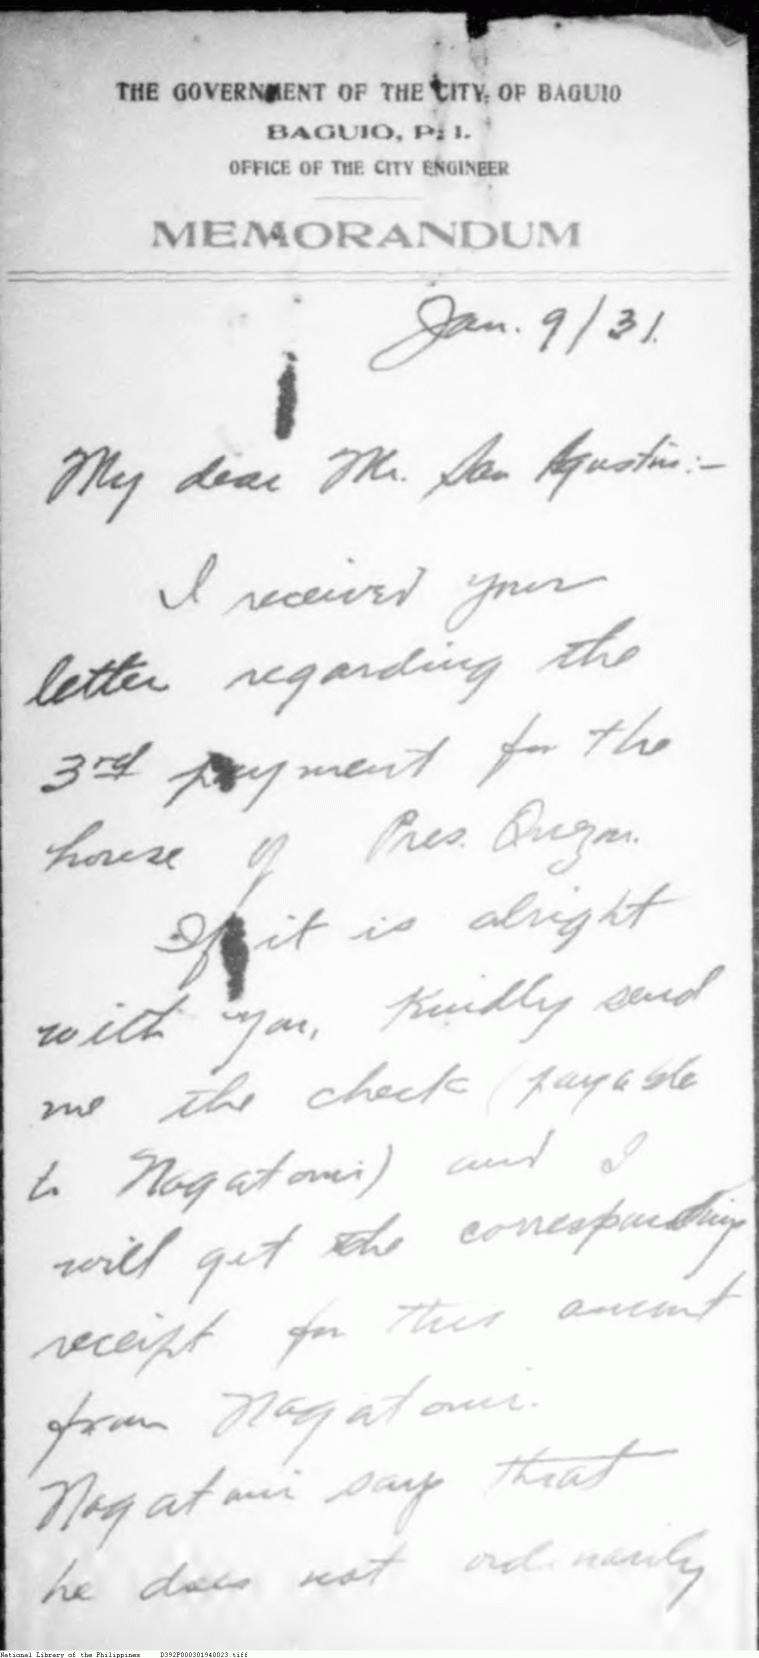 THE GOVERNMENT OF THE CITY OF BAGUIO
BAGUIO, P. I.
OFFICE OF THE CITY ENGINEER
MEMORANDUM
Jan. 9/31.
My dear Mr. San Agustin:-
I received your
letter regarding the
3rd payment for the
house of Pres. Quezon.
If it is alright
with you, kindly send
me the check (payable
to Nagatomi) and I
will get the corresponding
receipt for this amount
from Nagatomi.
Nagatomi say that
he does not ordinarily
National Library of the Philippines D392P000301940023.tiff